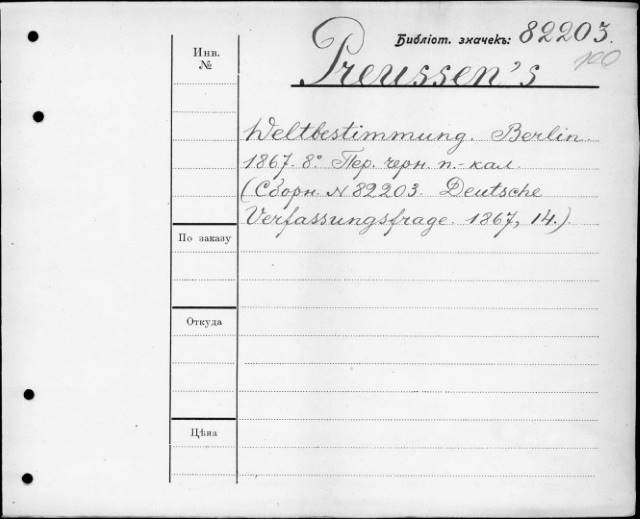 Библіот. значекъ: 82203.
Инв. №
Preussen's
Weltbestimmung. Berlin.
1867. 8° Пер. черн. п.-кал.
(Сборн. N 82203. Deutsche
Verfassungsfrage. 1867, 14.)
По заказу
Откуда
Цѣна